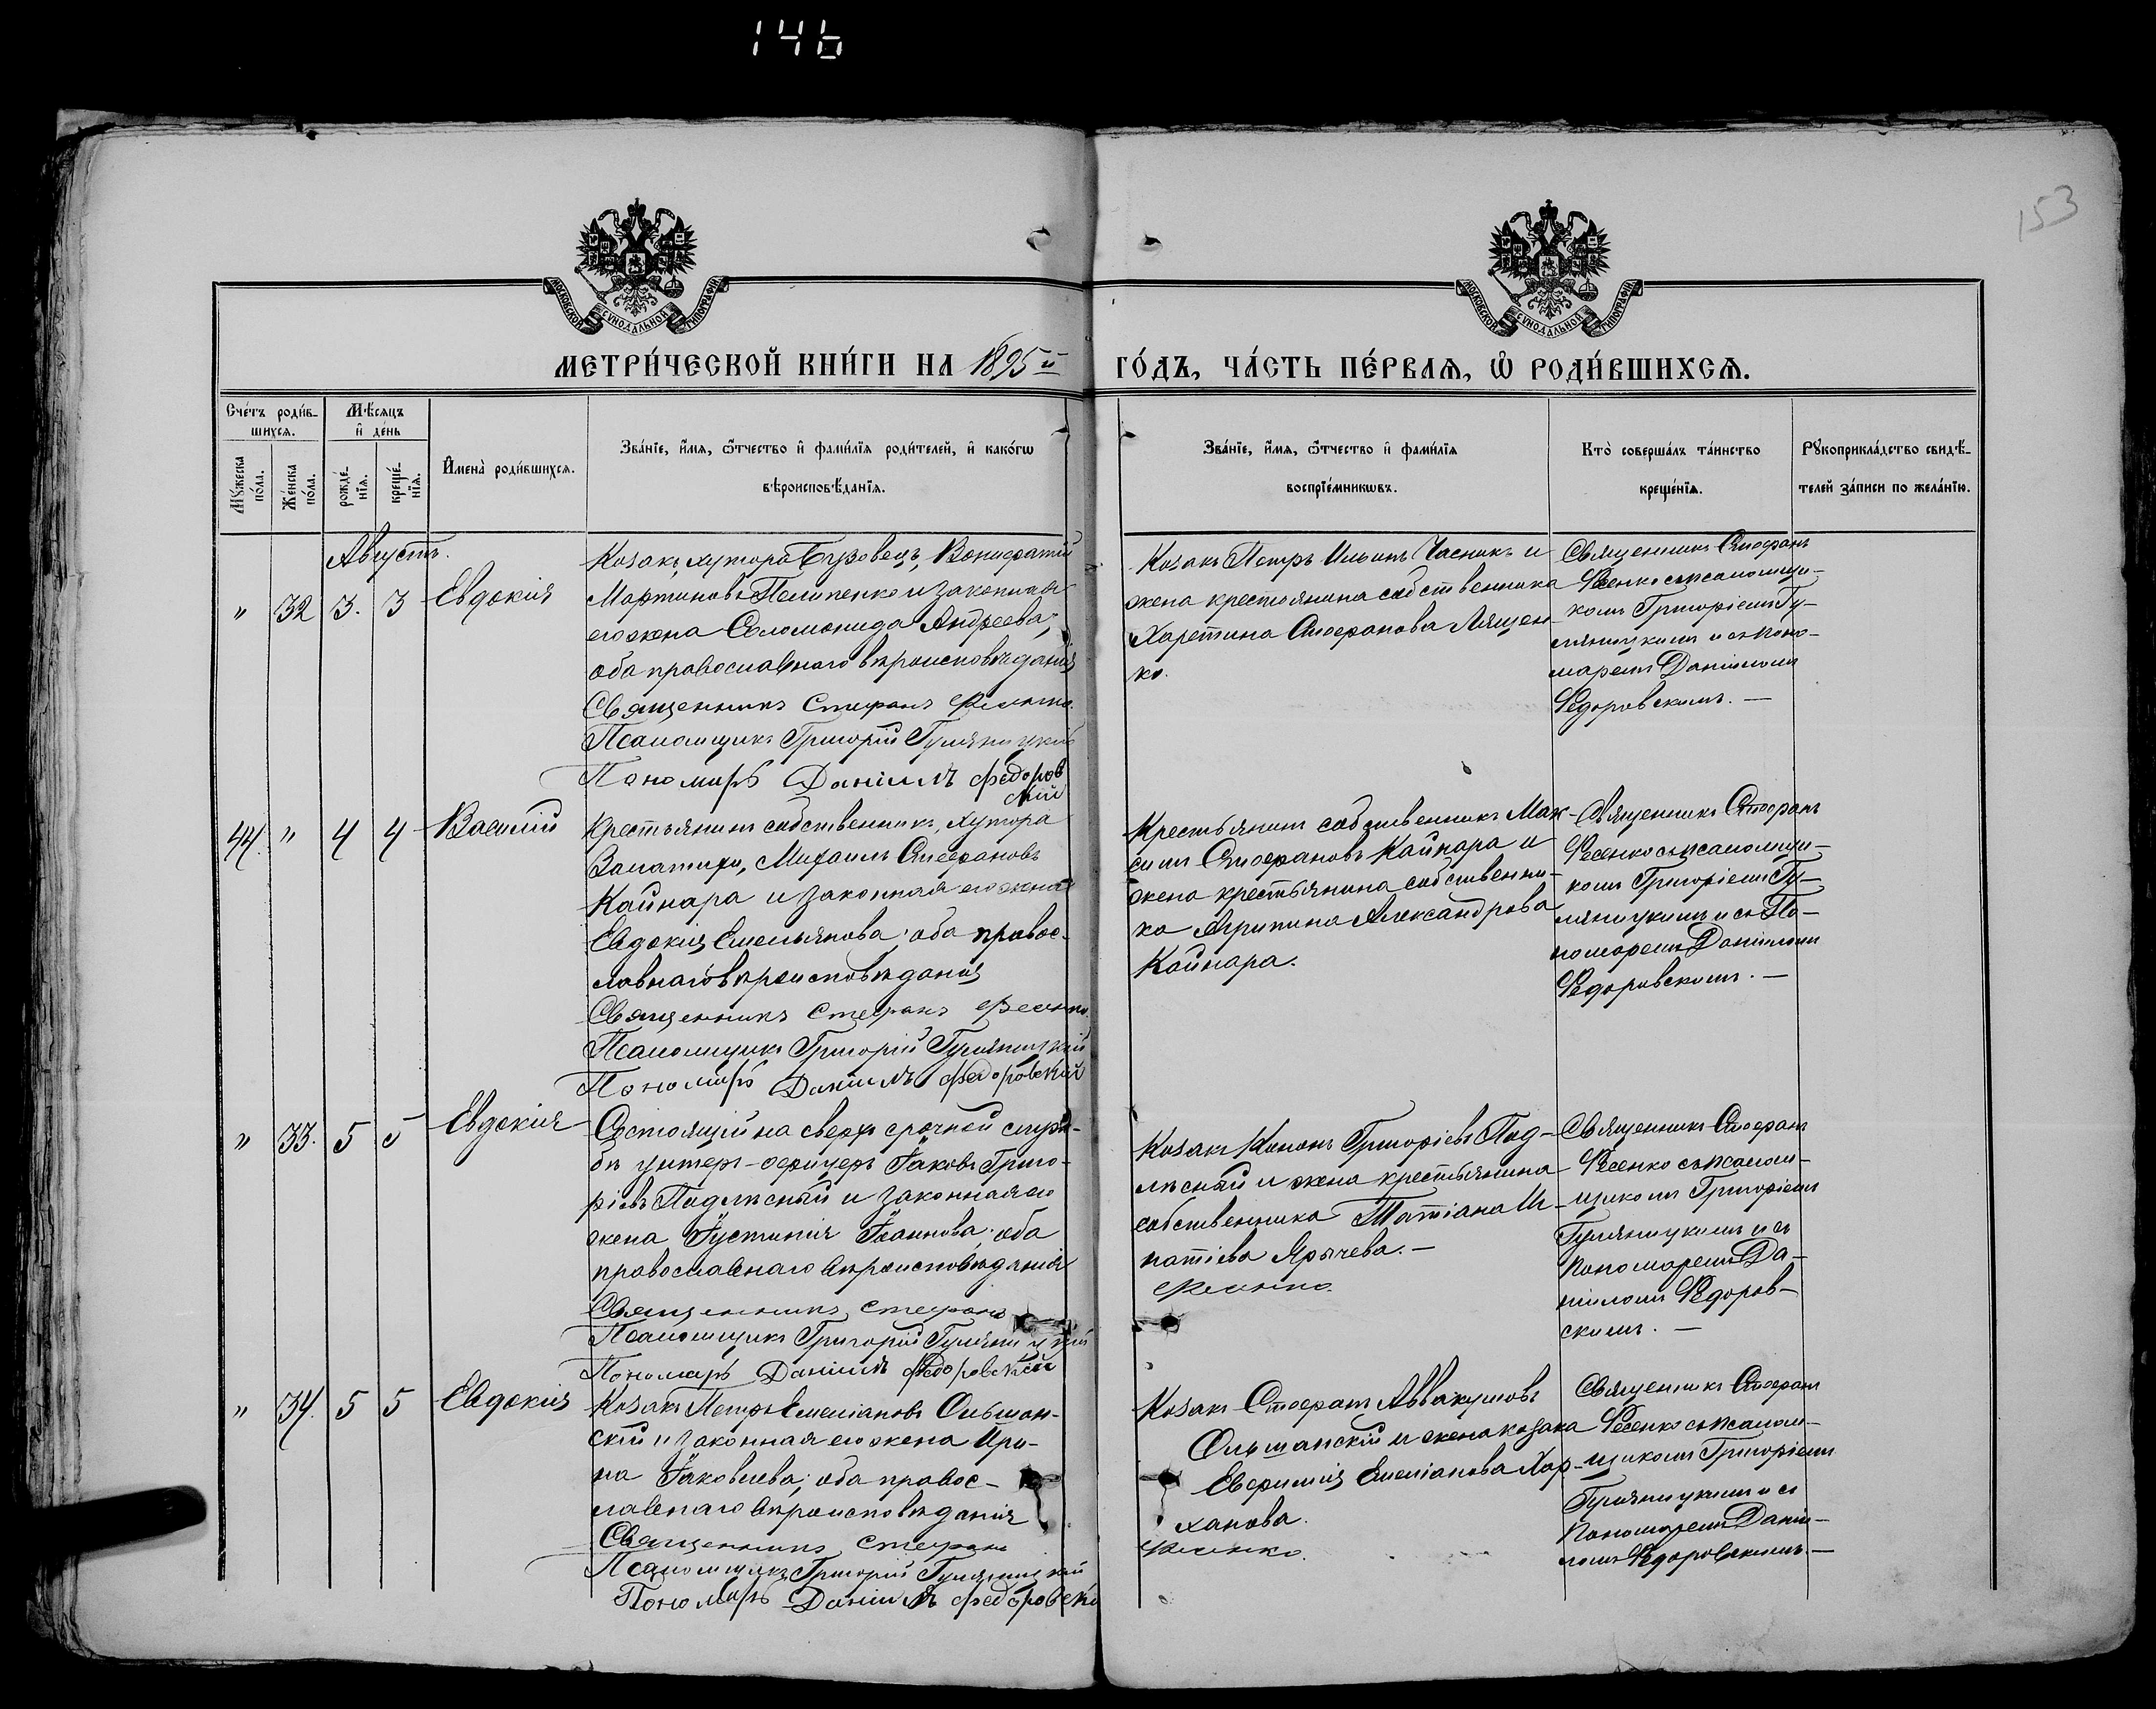 146
153
МОСКОВСКОЙ СѴНОДАЛЬНОЙ ТИПОГРАФІИ
МОСКОВСКОЙ СѴНОДАЛЬНОЙ ТИПОГРАФІИ
МЕТРИ́ЧЕСКОЙ КНИ́ГИ НА 1895й ГО́ДЪ, ЧА́СТЬ ПЕ́РВАѦ, Ѡ҆ РОДИ́ВШИХСѦ.
Сче́тъ роди́в-
шихсѧ.
Мѣ́сѧцъ
и҆ де́нь
Мꙋ́жеска
по́ла.
Же́нска
по́ла.
рожде́-
нїѧ.
креще́-
нїѧ.
И҆мена̀ роди́вшихсѧ.
Зва́нїе, и҆́мѧ, ѻ҆́тчество и҆ фами́лїѧ роди́телей, и҆ како́гѡ
вѣроисповѣ́данїѧ.
Зва́нїе, и҆́мѧ, ѻ҆́тчество и҆ фами́лїѧ
воспрїе́мникѡвъ.
Кто̀ соверша́лъ та́инство
креще́нїѧ.
Рꙋкоприкла́дство свидѣ́-
телей за́писи по жела́нїю.
Августъ.
" 32 3. 3 Евдокія
Козакъ, хутора Бузовецъ, Вонифатій
Мартиновъ Пелипенко и законная
его жена Соломонида Андреева;
оба православнаго вѣроисповѣданія
Священникъ Стефанъ Фесенко.
Псаломщикъ Григорій Гуляницкій
Пономарь Даніилъ Федоров
скій
Козакъ Петръ Ильинъ Часникъ и
жена крестьянина собственника
Харетина Стефанова Лящен-
ко.
Священникъ Стефанъ
Фесенко съ псаломщи-
комъ Григоріемъ Гу-
ляницкимъ и съ Поно-
маремъ Даніиломъ
Федоровскимъ. —
44. " 4 4 Василій
Крестьянинъ собственникъ, хутора
Михаилъ Стефановъ
Кайнара и законная его жена
Евдокія Емельянова; оба правос-
лавнаго вѣроисповѣданія
Священникъ Стефанъ Фесенко.
Псаломщикъ Григорій Гуляницкій
Пономарь Даніилъ Федоровскій
Крестьянинъ собственникъ Мак-
симъ Стефановъ Кайнара и
жена крестьянина собственни-
ка Агрипина Александрова
Кайнара.
Священникъ Стефанъ
Фесенко съ псаломщи-
комъ Григоріемъ Гу-
ляницкимъ и съ По-
номаремъ Даніиломъ
Федоровскимъ. —
" 33. 5 5 Евдокія
Состоящій на сверхъ срочной служ-
бѣ унтеръ-офицеръ Іаковъ Григо-
ріевъ Подлѣсный и законная его
жена Іустинія Іоаннова; оба
православнаго вѣроисповѣданія
Священникъ Стефанъ
Псаломщикъ Григорій Гуляницкій
Пономарь Даніилъ Федоровскій
Козакъ Кононъ Григоріевъ Под-
лѣсный и жена крестьянина
собственника Татіана И-
патіева Ярычева. —
Фесенко.
Священникъ Стефанъ
Фесенко съ псалом-
щикомъ Григоріемъ
Гуляницкимъ и съ
Пономаремъ Да-
ніиломъ Федоров-
скимъ. —
" 34. 5 5 Евдокія
Козакъ Петръ Емеліановъ Ольшан-
скій и законная его жена Ири-
на Іаковлева; оба правос-
лавнаго вѣроисповѣданія
Священникъ Стефанъ
Псаломщикъ Григорій Гуляницкій
Пономарь Даніилъ Федоровскій
Козакъ Стефанъ Аввакумовъ
Ольшанскій и жена козака
Евфимія Емеліанова Хар-
ханова.
Фесенко.
Священникъ Стефанъ
Фесенко съ псалом-
щикомъ Григоріемъ
Гуляницкимъ и съ
Пономаремъ Даніи-
ломъ Федоровскимъ. —